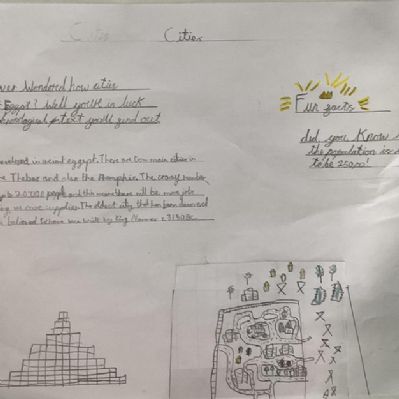 Cities
Cities
ever Wondered how cities
Egypt? Well you'll in luck
text you'll find out
Fun facts
did you Know
the population is
to be 25,000!
in ancient eggypt. There are two main cities in
Thebes and also the Memphis. The crazy number
people and this means there will be more jobs
more supplies. The oldest city that has been
believed to have was built by King c 3150 Bc.